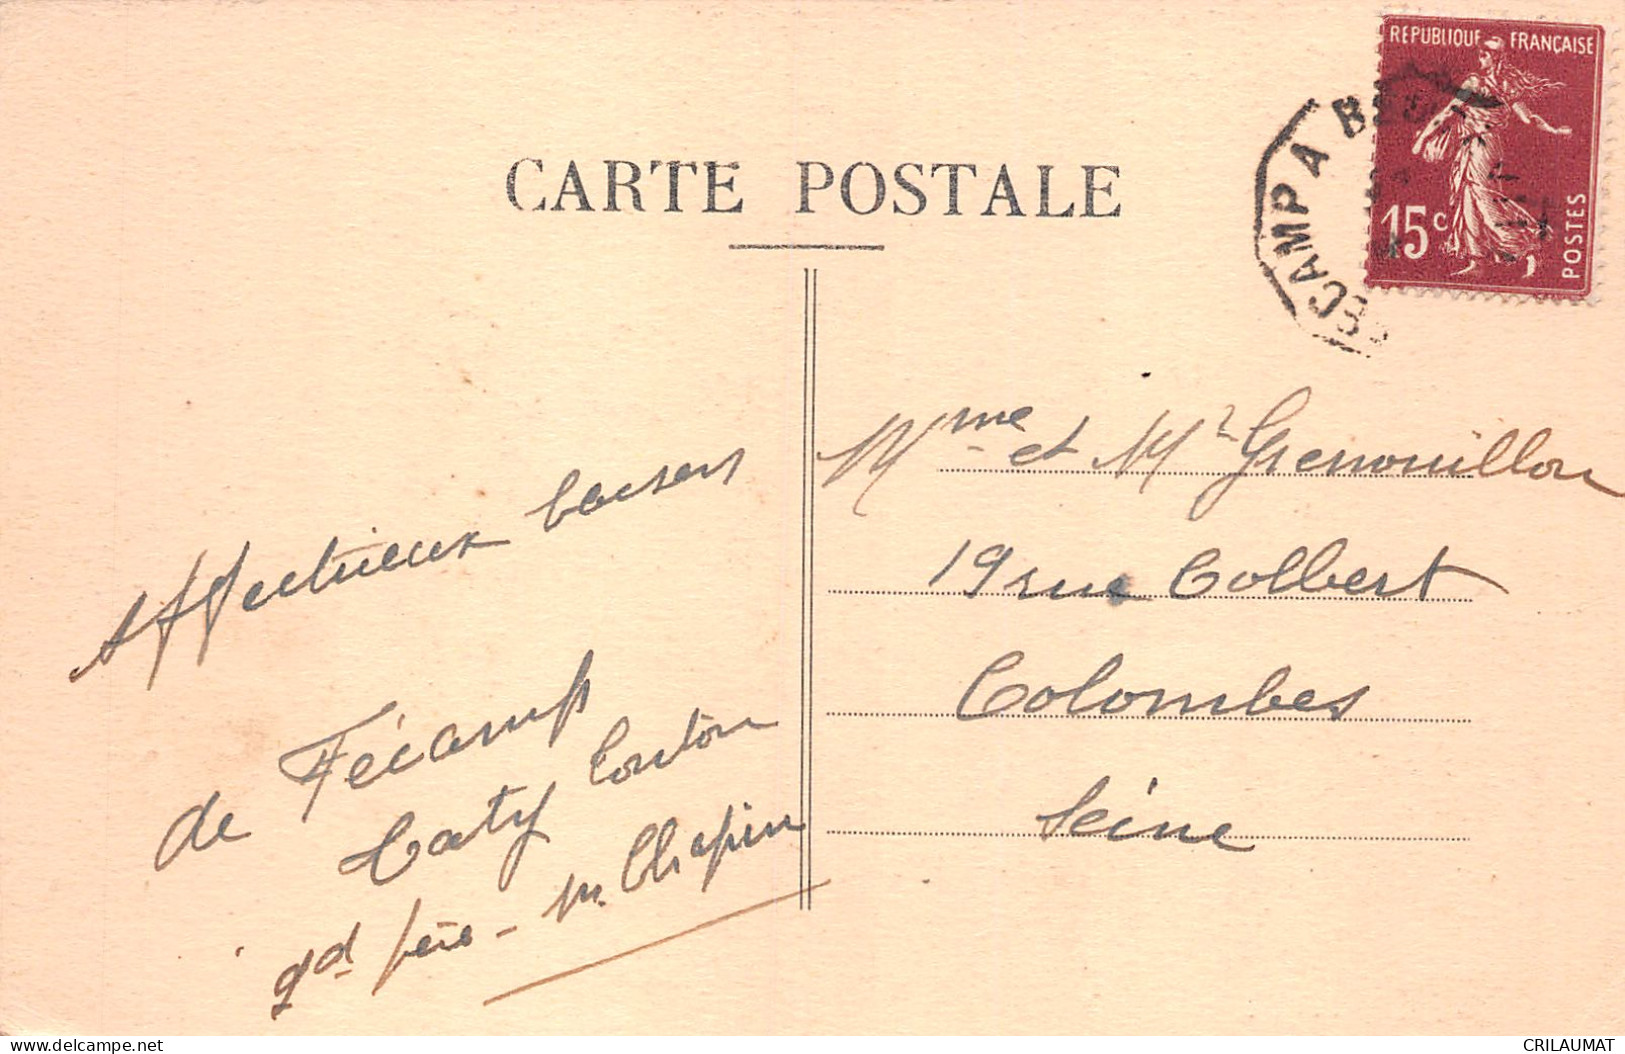 CARTE POSTALE
REPUBLIQUE FRANÇAISE
15c
POSTES
FECAMP A
Affectueux baisers
de Fécamp
Caty Conton
gd père - M. Chapin
Mme et Mr Grenouillon
19 rue Colbert
Colombes
Seine
delcampe.net
CRILAUMAT